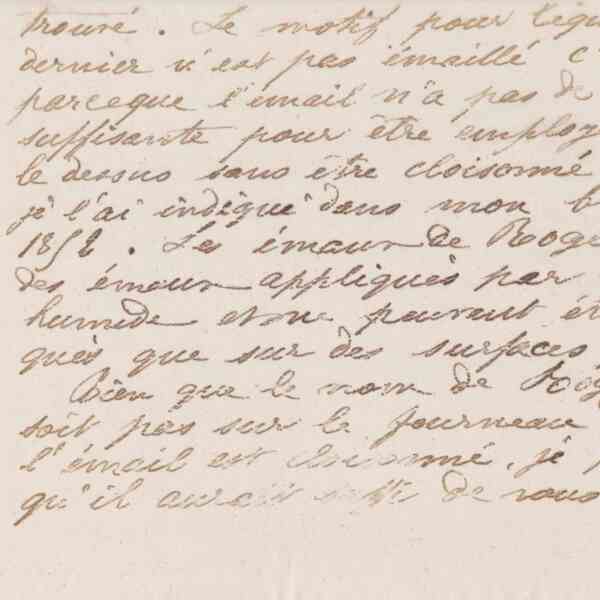 trouvé. Le motif pour lequ
dernier n'est pas émaillé c'
parceque l'émail n'a pas de
suffisante pour être employ
le dessus sans être cloisonné
je l'ai indiqué dans mon b
1852. Les émaux de Roge
des émaux appliqués par
humide et ne peuvent êt
qués que sur des surfaces
Bien que le nom de Rog
soit pas sur le fourneau
l'émail est cloisonné, je p
qu'il aurait suffi de vous